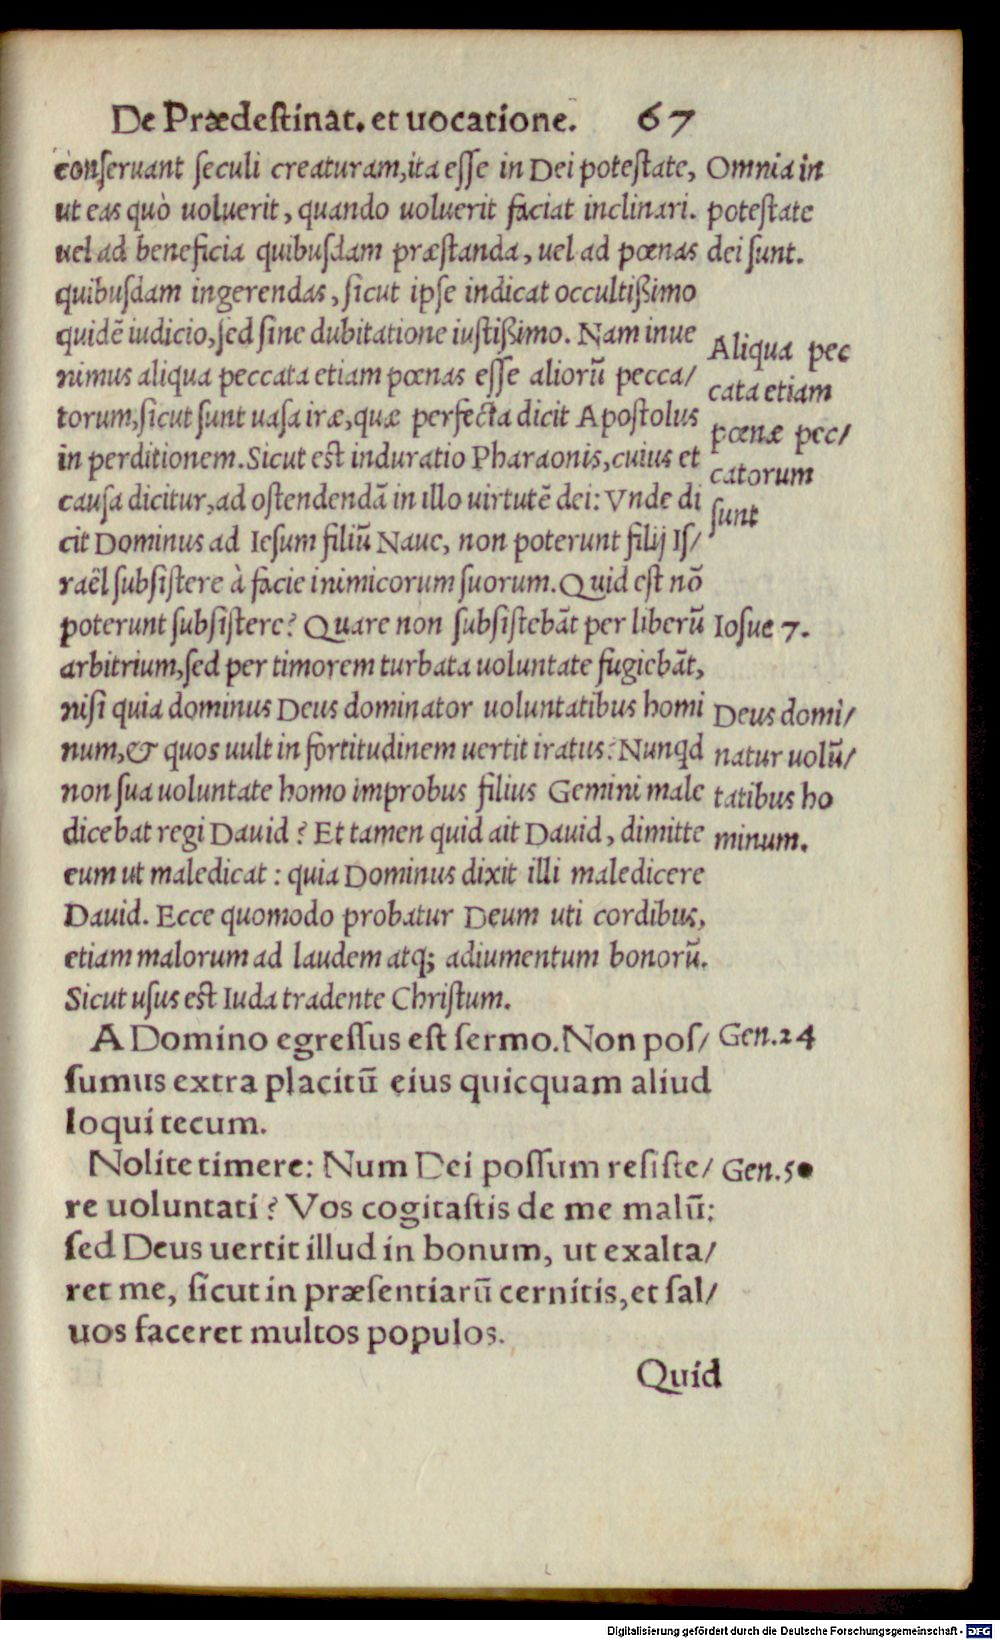 De Prædeſtinat. et uocatione. 67
conſeruant ſeculi creaturam, ita eſſe in Dei poteſtate,
ut eas quò uoluerit, quando uoluerit faciat inclinari.
uel ad beneficia quibuſdam præſtanda, uel ad pœnas
quibuſdam ingerendas, ſicut ipſe indicat occultißimo
quidē iudicio, ſed ſine dubitatione iuſtißimo. Nam inue
nimus aliqua peccata etiam pœnas eſſe aliorū pecca/
torum, ſicut ſunt uaſa iræ, quæ perfecta dicit Apoſtolus
in perditionem. Sicut eſt induratio Pharaonis, cuius et
cauſa dicitur, ad oſtendendā in illo uirtutē dei: Vnde di
cit Dominus ad Ieſum filiū Naue, non poterunt filij Iſ/
raēl ſubſiſtere à facie inimicorum ſuorum. Quid eſt nō
poterunt ſubſiſtere? Quare non ſubſiſtebāt per liberū
arbitrium, ſed per timorem turbata uoluntate fugiebāt,
niſi quia dominus Deus dominator uoluntatibus homi
num, & quos uult in fortitudinem uertit iratus? Nunqd
non ſua uoluntate homo improbus filius Gemini male
dicebat regi Dauid? Et tamen quid ait Dauid, dimitte
eum ut maledicat: quia Dominus dixit illi maledicere
Dauid. Ecce quomodo probatur Deum uti cordibus,
etiam malorum ad laudem atq; adiumentum bonorū.
Sicut uſus eſt Iuda tradente Chriſtum.
A Domino egreſſus eſt ſermo. Non poſ/
ſumus extra placitū eius quicquam aliud
loqui tecum.
Nolite timere: Num Dei poſſum reſiſte/
re uoluntati? Vos cogitaſtis de me malū:
ſed Deus uertit illud in bonum, ut exalta/
ret me, ſicut in præſentiarū cernitis, et ſal/
uos faceret multos populos.
Quid
Omnia in
poteſtate
dei ſunt.
Aliqua pec
cata etiam
pœnæ pec/
catorum
ſunt
Ioſue 7.
Deus domi/
natur uolū/
tatibus ho
minum.
Gen. 24
Gen. 50
Digitalisierung gefördert durch die Deutsche Forschungsgemeinschaft - DFG